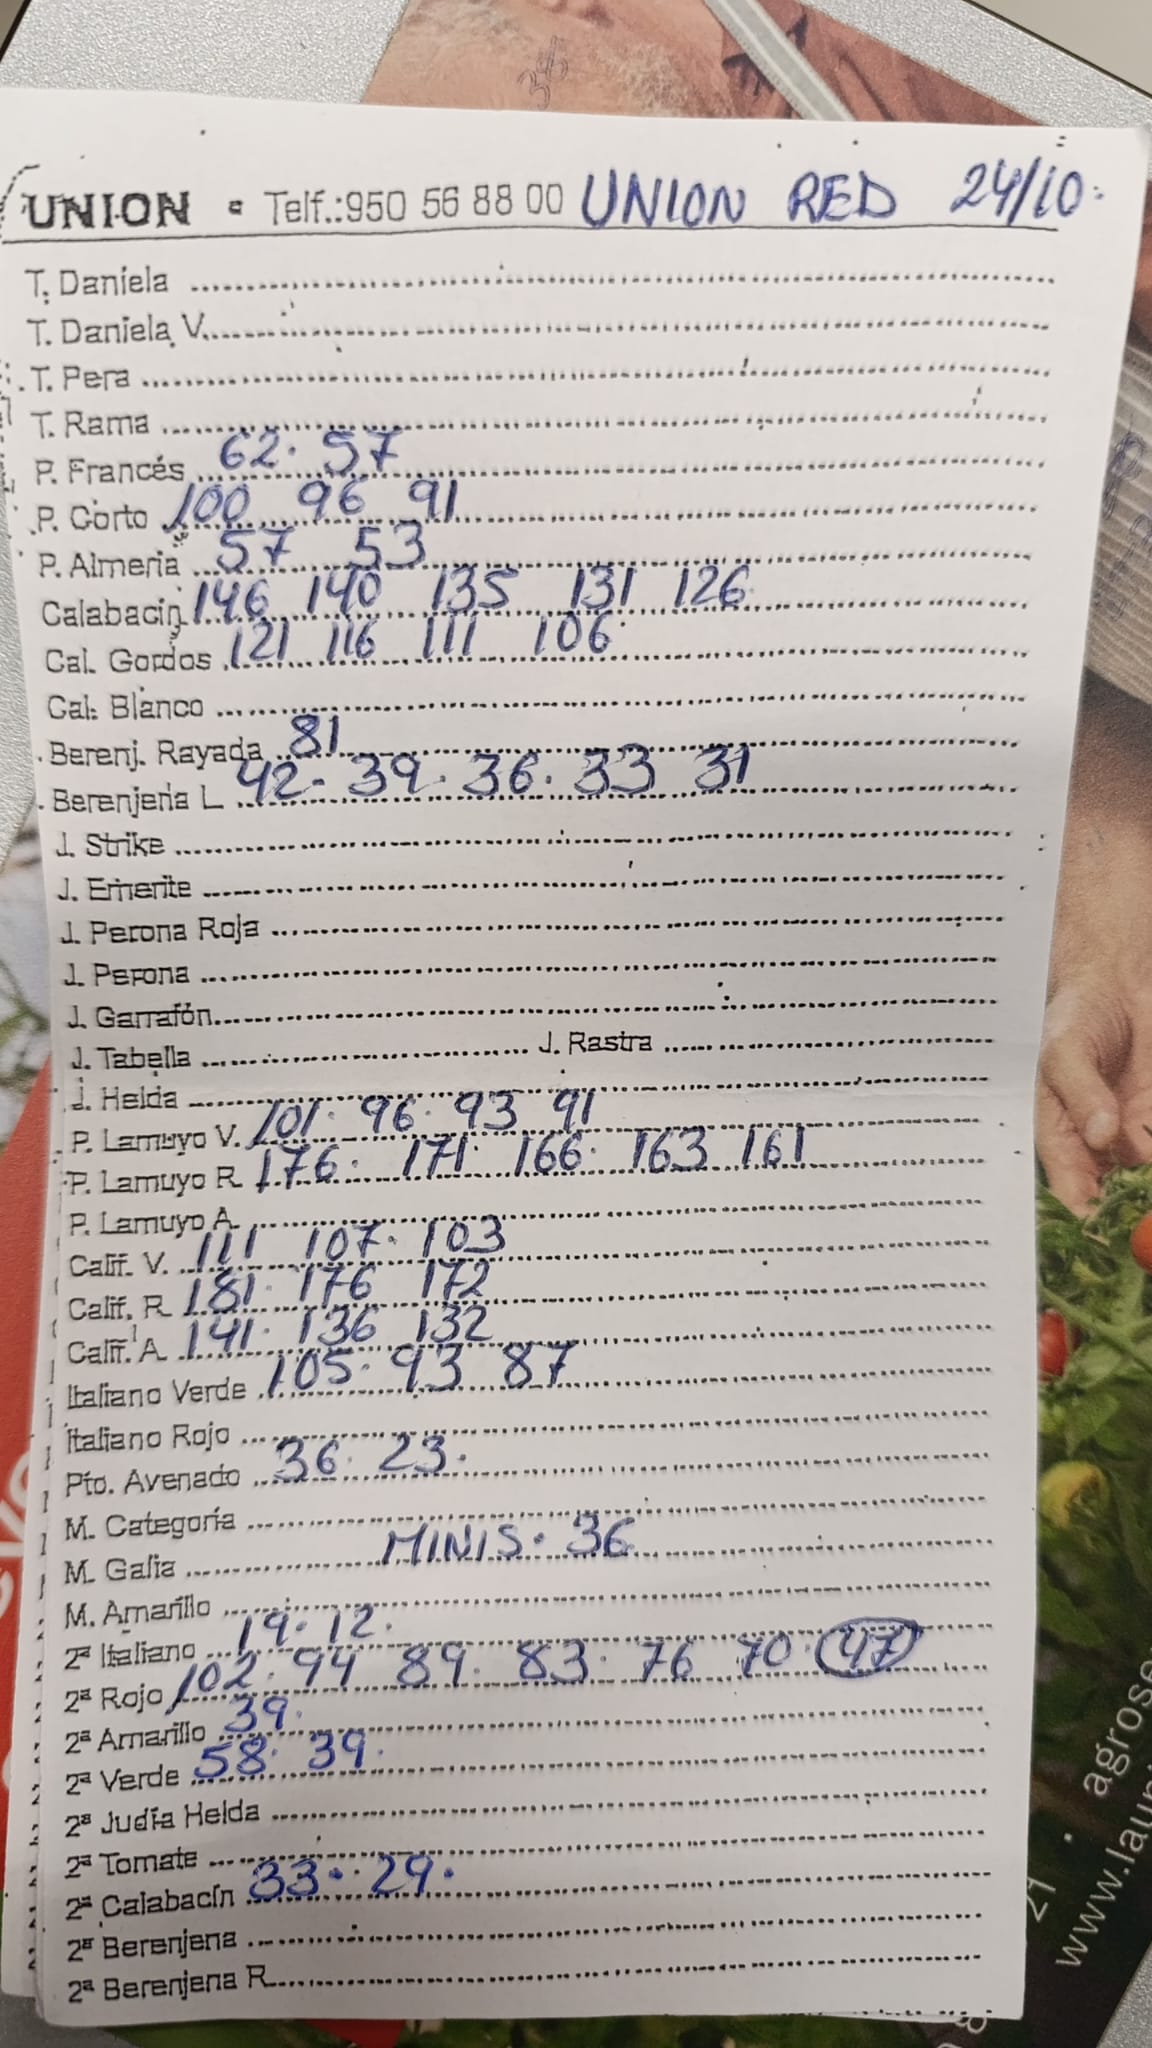 UNION • Telf.:950 56 88 00 UNION RED 24/10
T. Daniela
T. Daniela V.
T. Pera
T. Rama
P. Francés 62 57
P. Corto 100 96 91
P. Almeria 57 53
Calabacín 146 140 135 131 126
Cal. Gordos 121 116 111 106
Cal. Blanco
Berenj. Rayada 81
Berenjena L 42 39 36 33 31
J. Strike
J. Emerite
J. Perona Roja
J. Perona
J. Garrafón
J. Tabella J. Rastra
J. Helda
P. Lamuyo V. 101 96 93 91
P. Lamuyo R. 176 171 166 163 161
P. Lamuyo A.
Calif. V. 111 107 103
Calif. R 181 176 172
Calif. A. 141 136 132
Italiano Verde 105 93 87
Italiano Rojo
Pto. Avenado 36 23
M. Categoría
M. Galia MINIS 36
M. Amarillo
2ª Italiano 19 12
2ª Rojo 102 94 89 83 76 70 47
2ª Amarillo 39
2ª Verde 58 39
2ª Judía Helda
2ª Tomate
2ª Calabacín 33 29
2ª Berenjena
2ª Berenjena R